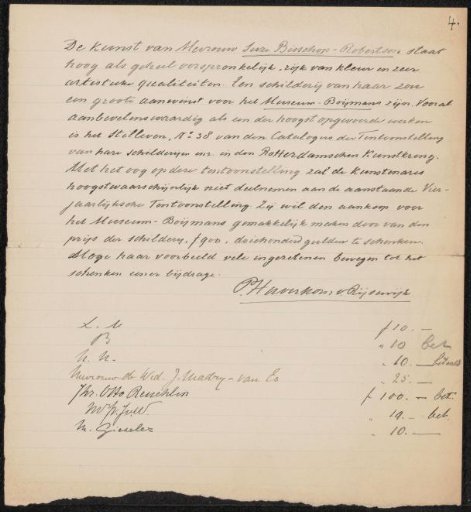 4.
De kunst van Mevrouw Suze Bisschop-Robertson staat
hoog als geheel oorspronkelijk, rijk van kleur en zeer
artistieke qualiteiten. Een schilderij van haar zou
een groote aanwinst voor het Museum-Boijmans zijn. Vooral
aanbevelenswaardig als een der hoogst opgevoerde werken
is het Stilleven, No. 38 van den Catalogus der Tentoonstelling
van hare schilderijen enz. in den Rotterdamschen Kunstkring.
Met het oog op deze tentoonstelling zal de kunstenares
hoogstwaarschijnlijk niet deelnemen aan de aanstaande Vier-
jaarlijksche Tentoonstelling. Zij wil den aankoop voor
het Museum-Boijmans gemakkelijk maken door van den
prijs der schilderij, f 900, driehonderd gulden te schenken.
Moge haar voorbeeld vele ingezetenen bewegen tot het
schenken eener bijdrage.
P. Haverkorn v Rijsewijk
L. M f 10.—
B „ 10 bet
N. N. „ 10.—
Mevrouw de Wed. J. — van Es „ 25.—
Jhr. Otto Reuchlin f 100.— bet.
„ 10.— bet.
„ 10.—